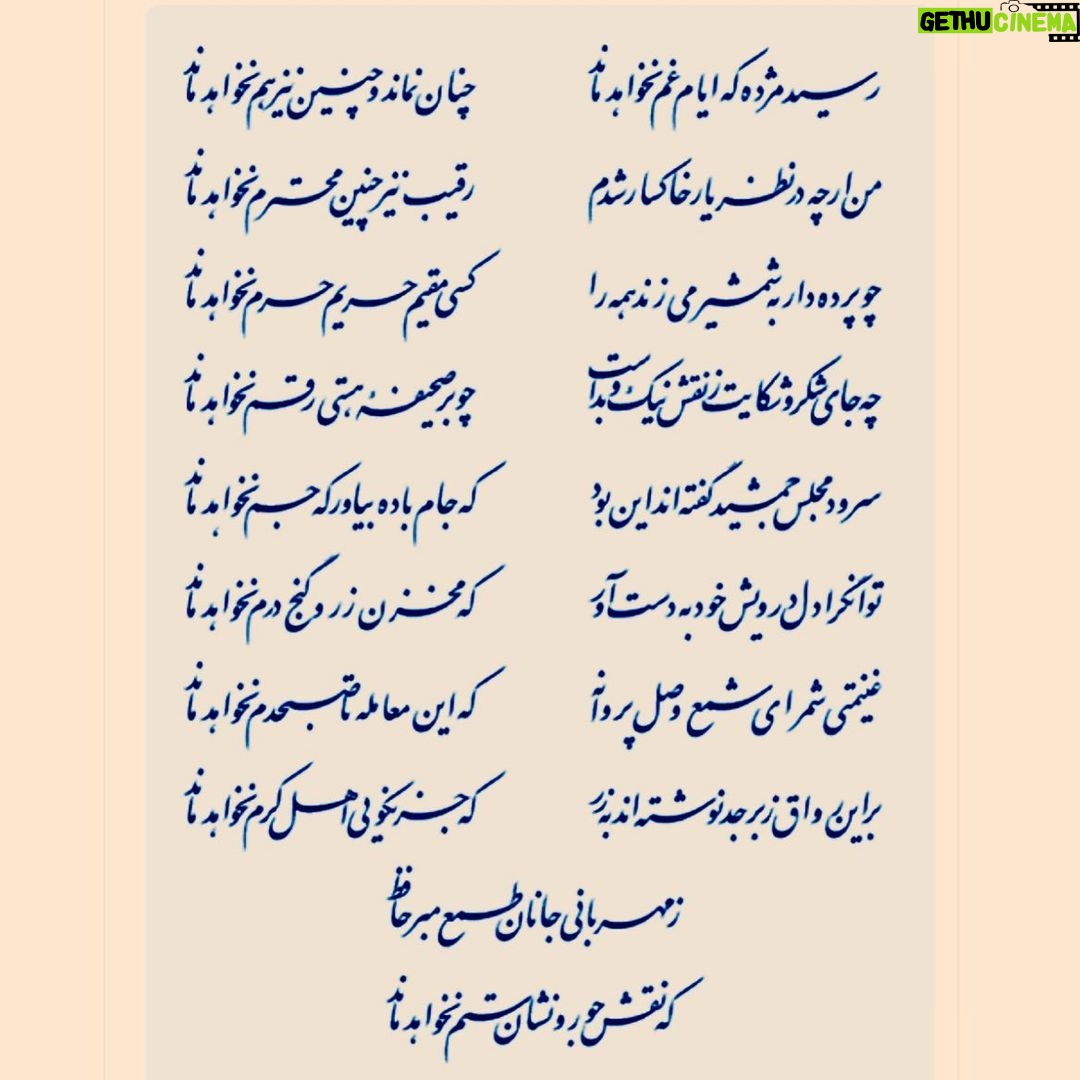 GETHUCINEMA
رسید مژده که ایام غم نخواهد ماند چنان نماند و چنین نیز هم نخواهد ماند
من ارچه در نظر یار خاکسار شدم رقیب نیز چنین محترم نخواهد ماند
چو پرده دار به شمشیر می زند همه را کسی مقیم حریم حرم نخواهد ماند
چه جای شکر و شکایت ز نقش نیک و بد است چو بر صحیفهٔ هستی رقم نخواهد ماند
سرود مجلس جمشید گفته اند این بود که جام باده بیاور که جم نخواهد ماند
توانگرا دل درویش خود به دست آور که مخزن زر و گنج درم نخواهد ماند
غنیمتی شمر ای شمع وصل پروانه که این معامله تا صبحدم نخواهد ماند
بر این رواق زبرجد نوشته اند به زر که جز نکویی اهل کرم نخواهد ماند
ز مهربانی جانان طمع مبر حافظ
که نقش جور و نشان ستم نخواهد ماند